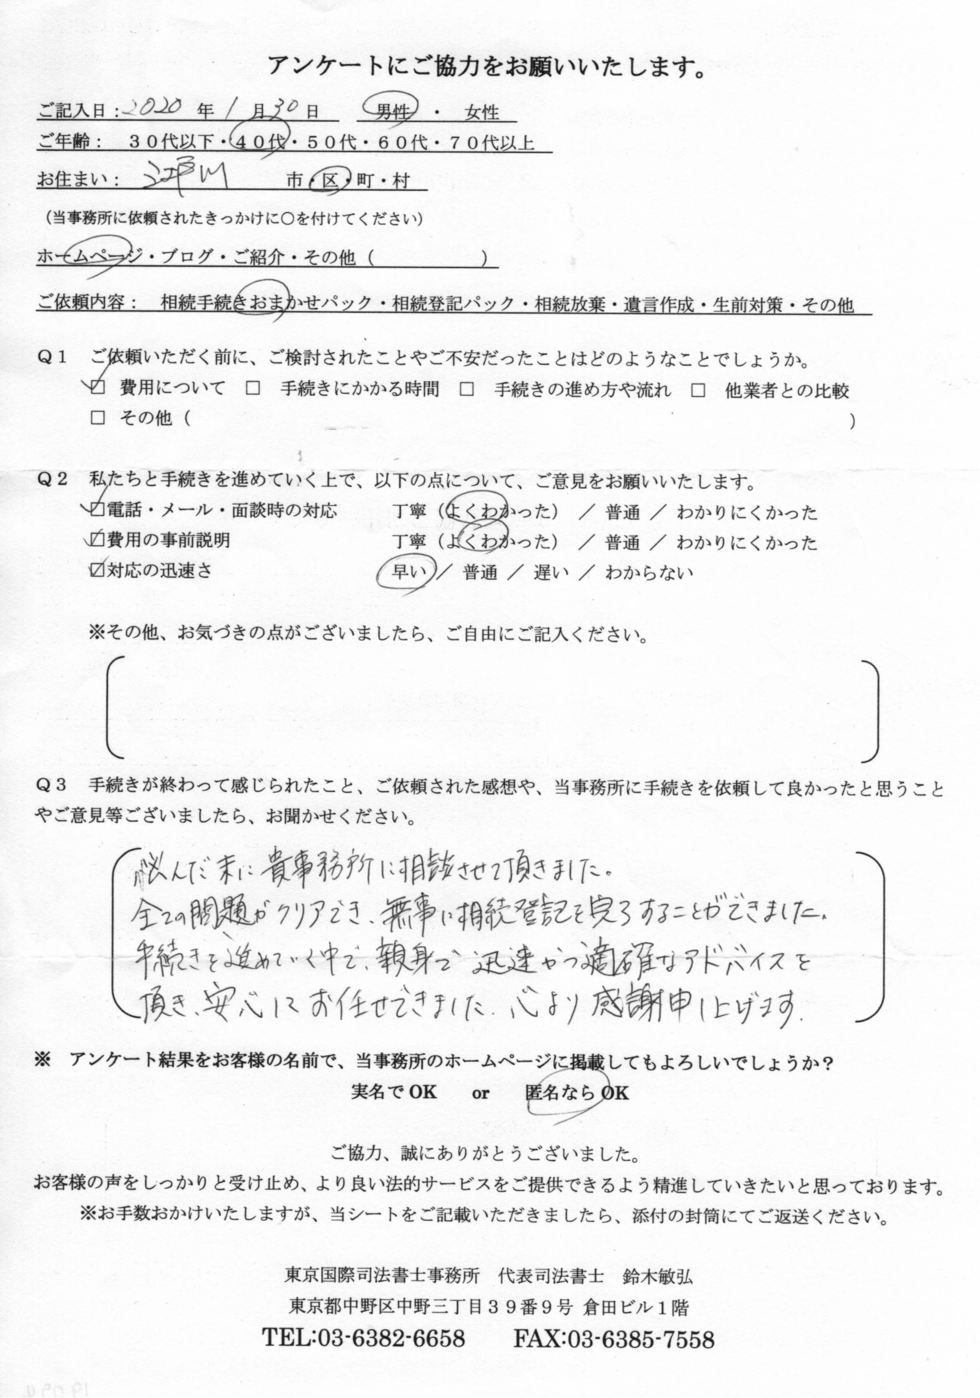 アンケートにご協力をお願いいたします。
ご記入日：2020 年 1 月 30 日　男性 ・ 女性
ご年齢：　３０代以下・４０代・５０代・６０代・７０代以上
お住まい：　江戸川　市・区・町・村
（当事務所に依頼されたきっかけに〇を付けてください）
ホームページ・ブログ・ご紹介・その他（　　　　　　）
ご依頼内容：　相続手続きおまかせパック・相続登記パック・相続放棄・遺言作成・生前対策・その他
Ｑ１　ご依頼いただく前に、ご検討されたことやご不安だったことはどのようなことでしょうか。
☑ 費用について　□　手続きにかかる時間　□　手続きの進め方や流れ　□　他業者との比較
□ その他（　　　　　　　　　　　　　　　　　　　　）
Ｑ２　私たちと手続きを進めていく上で、以下の点について、ご意見をお願いいたします。
☑電話・メール・面談時の対応　　丁寧（よくわかった） ／ 普通 ／ わかりにくかった
☑費用の事前説明　　丁寧（よくわかった） ／ 普通 ／ わかりにくかった
☑対応の迅速さ　　早い ／ 普通 ／ 遅い ／ わからない
※その他、お気づきの点がございましたら、ご自由にご記入ください。
Ｑ３　手続きが終わって感じられたこと、ご依頼された感想や、当事務所に手続きを依頼して良かったと思うこと
やご意見等ございましたら、お聞かせください。
悩んだ末に貴事務所に相談させて頂きました。
全ての問題がクリアでき、無事に相続登記を完了することができました。
手続きを進めていく中で、親身で迅速かつ適確なアドバイスを
頂き、安心してお任せできました。心より感謝申し上げます。
※　アンケート結果をお客様の名前で、当事務所のホームページに掲載してもよろしいでしょうか？
実名で OK　　or　　匿名なら OK
ご協力、誠にありがとうございました。
お客様の声をしっかりと受け止め、より良い法的サービスをご提供できるよう精進していきたいと思っております。
※お手数おかけいたしますが、当シートをご記載いただきましたら、添付の封筒にてご返送ください。
東京国際司法書士事務所　代表司法書士　鈴木敏弘
東京都中野区中野三丁目３９番９号 倉田ビル１階
TEL:03-6382-6658　　FAX:03-6385-7558